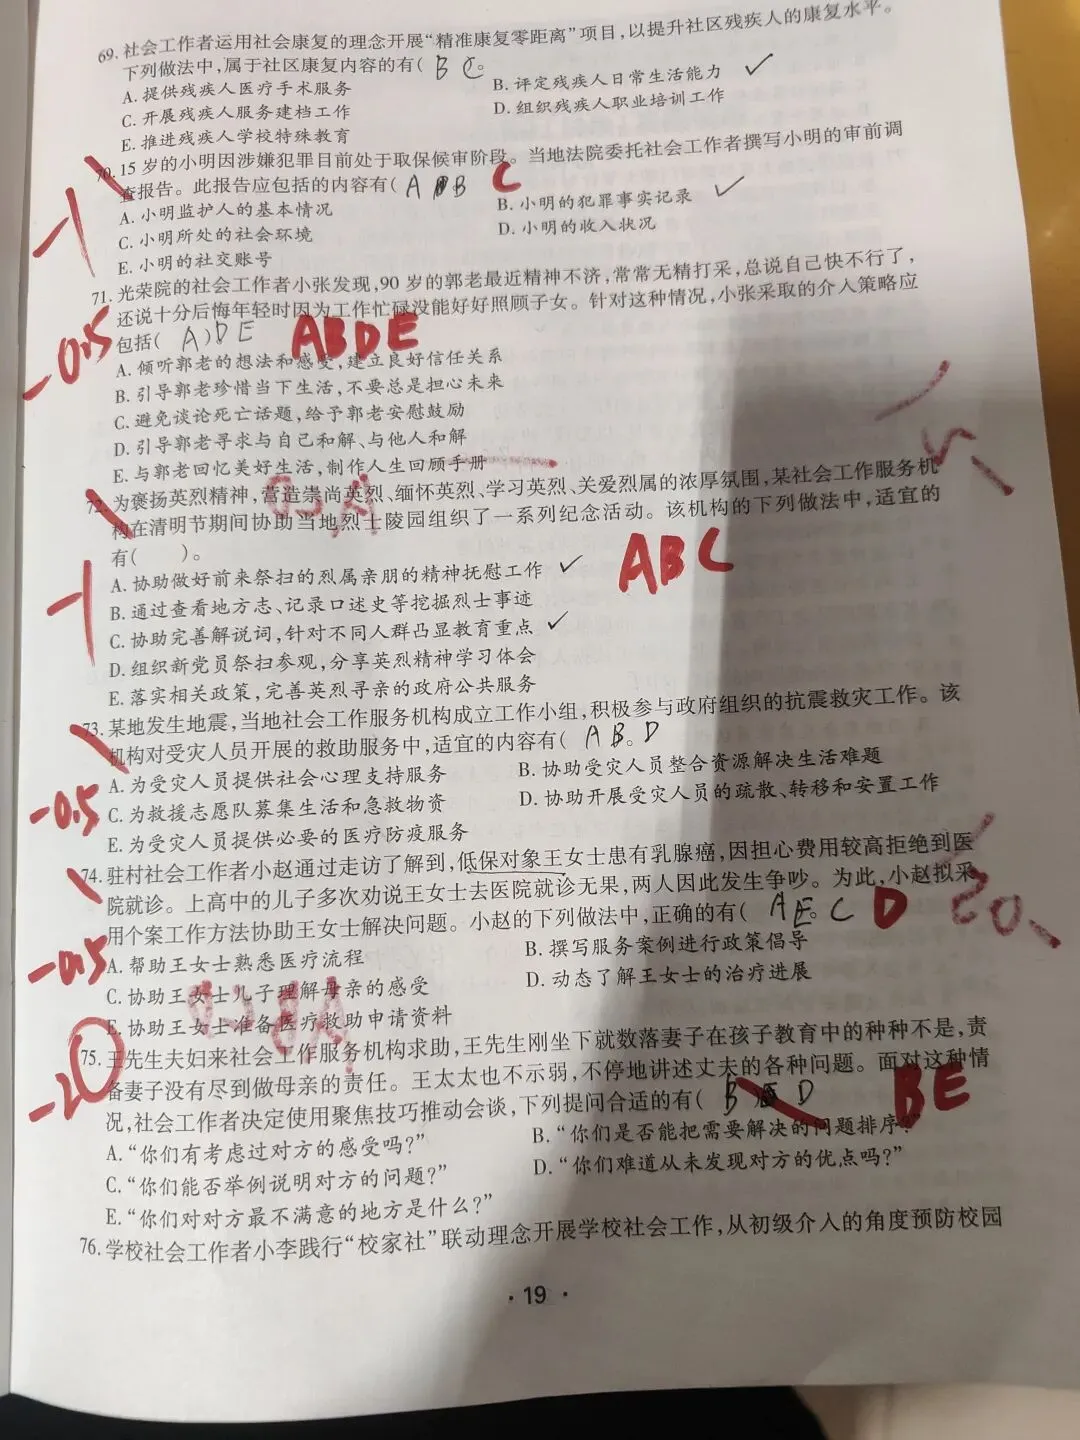 69. 社会工作者运用社会康复的理念开展“精准康复零距离”项目,以提升社区残疾人的康复水平。
下列做法中,属于社区康复内容的有( B C 。
A. 提供残疾人医疗手术服务 B. 评定残疾人日常生活能力 ✓
C. 开展残疾人服务建档工作 D. 组织残疾人职业培训工作
E. 推进残疾人学校特殊教育
70. 15 岁的小明因涉嫌犯罪目前处于取保候审阶段。当地法院委托社会工作者撰写小明的审前调
查报告。此报告应包括的内容有( A B C
-1
A. 小明监护人的基本情况 B. 小明的犯罪事实记录 ✓
C. 小明所处的社会环境 D. 小明的收入状况
E. 小明的社交账号
71. 光荣院的社会工作者小张发现,90 岁的郭老最近精神不济,常常无精打采,总说自己快不行了,
还说十分后悔年轻时因为工作忙碌没能好好照顾子女。针对这种情况,小张采取的介入策略应
包括( A)DE ABDE
-0.5
A. 倾听郭老的想法和感受,建立良好信任关系
B. 引导郭老珍惜当下生活,不要总是担心未来
C. 避免谈论死亡话题,给予郭老安慰鼓励
D. 引导郭老寻求与自己和解、与他人和解
E. 与郭老回忆美好生活,制作人生回顾手册
72. 为褒扬英烈精神,营造崇尚英烈、缅怀英烈、学习英烈、关爱烈属的浓厚氛围,某社会工作服务机
构在清明节期间协助当地烈士陵园组织了一系列纪念活动。该机构的下列做法中,适宜的
有( )。
ABC
-1
A. 协助做好前来祭扫的烈属亲朋的精神抚慰工作 ✓
B. 通过查看地方志、记录口述史等挖掘烈士事迹
C. 协助完善解说词,针对不同人群凸显教育重点 ✓
D. 组织新党员祭扫参观,分享英烈精神学习体会
E. 落实相关政策,完善英烈寻亲的政府公共服务
73. 某地发生地震,当地社会工作服务机构成立工作小组,积极参与政府组织的抗震救灾工作。该
机构对受灾人员开展的救助服务中,适宜的内容有( A B 。D
-0.5
A. 为受灾人员提供社会心理支持服务 B. 协助受灾人员整合资源解决生活难题
C. 为救援志愿队募集生活和急救物资 D. 协助开展受灾人员的疏散、转移和安置工作
E. 为受灾人员提供必要的医疗防疫服务
74. 驻村社会工作者小赵通过走访了解到,低保对象王女士患有乳腺癌,因担心费用较高拒绝到医
院就诊。上高中的儿子多次劝说王女士去医院就诊无果,两人因此发生争吵。为此,小赵拟采
用个案工作方法协助王女士解决问题。小赵的下列做法中,正确的有( A E 。C D
-0.5
A. 帮助王女士熟悉医疗流程 B. 撰写服务案例进行政策倡导
C. 协助王女士儿子理解母亲的感受 D. 动态了解王女士的治疗进展
E. 协助王女士准备医疗救助申请资料
-20
75. 王先生夫妇来社会工作服务机构求助,王先生刚坐下就数落妻子在孩子教育中的种种不是,责
备妻子没有尽到做母亲的责任。王太太也不示弱,不停地讲述丈夫的各种问题。面对这种情
况,社会工作者决定使用聚焦技巧推动会谈,下列提问合适的有( B D BE
A. “你们有考虑过对方的感受吗?” B. “你们是否能把需要解决的问题排序?”
C. “你们能否举例说明对方的问题?” D. “你们难道从未发现对方的优点吗?”
E. “你们对对方最不满意的地方是什么?”
76. 学校社会工作者小李践行“校家社”联动理念开展学校社会工作,从初级介入的角度预防校园
· 19 ·